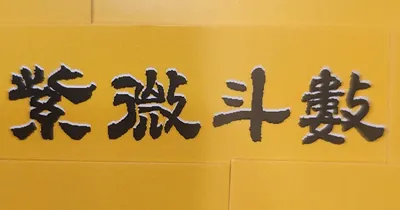 紫微斗數